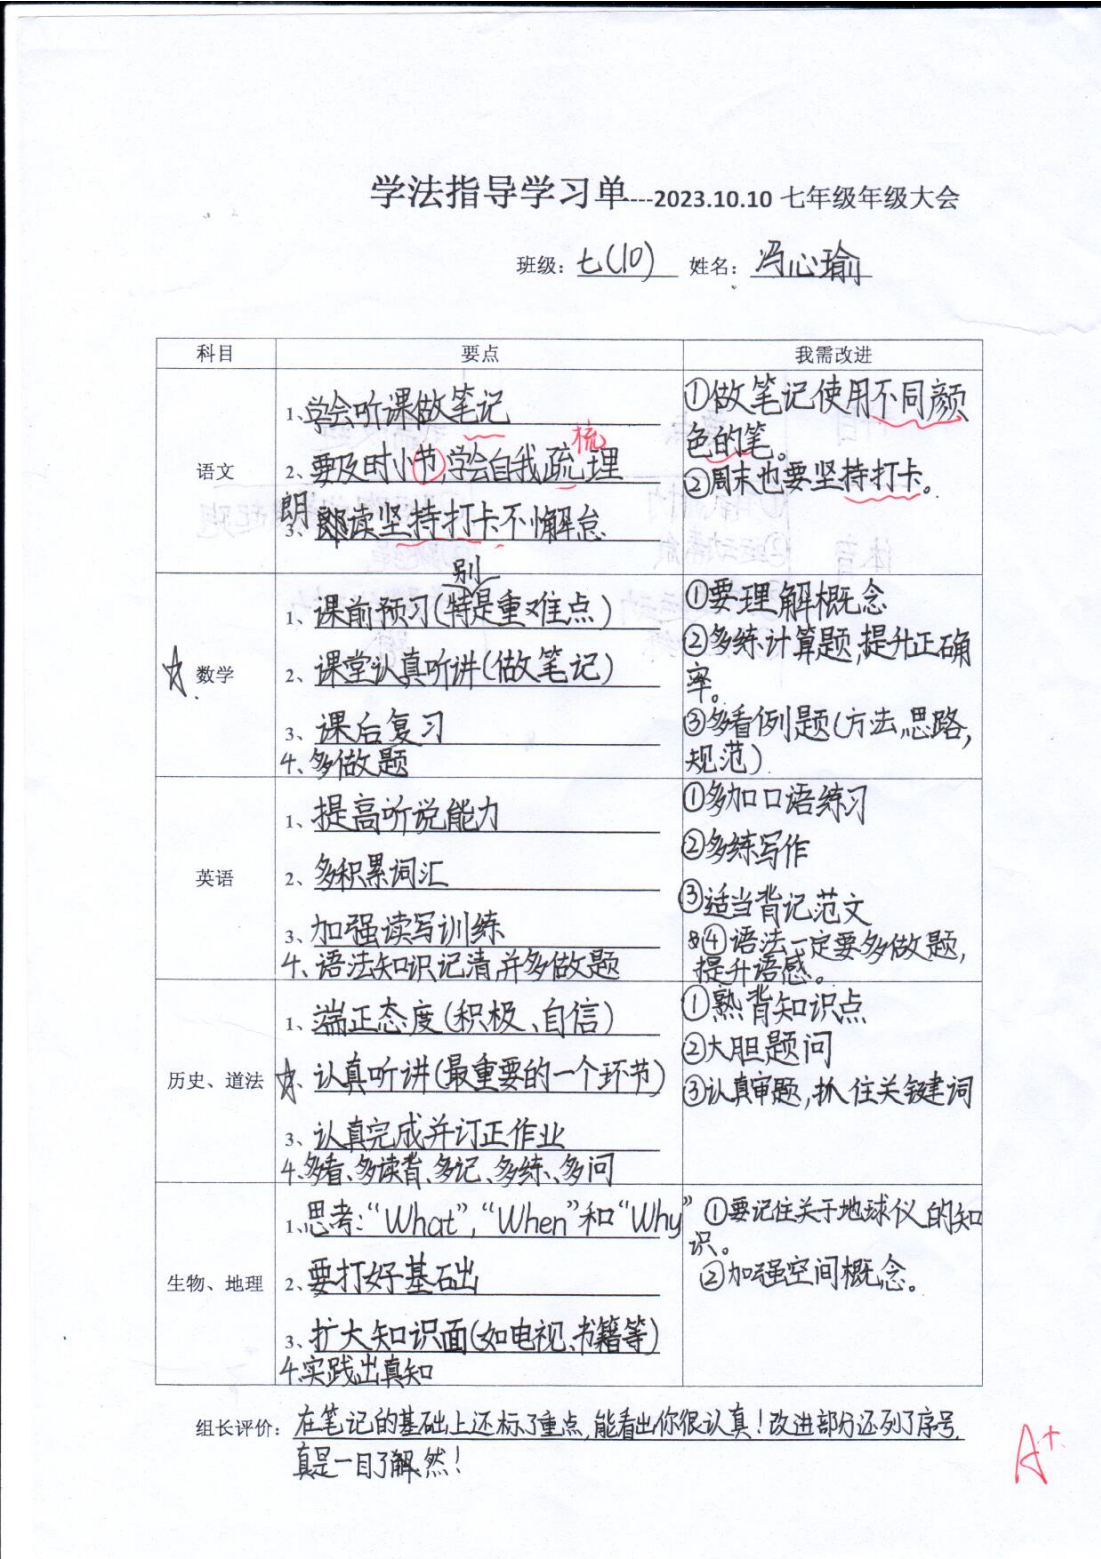 学法指导学习单---2023.10.10 七年级年级大会
班级：七(10) 姓名：冯心瑜
科目 要点 我需改进
语文
1、学会听课做笔记
梳
2、要及时小节,学会自我疏理
朗
3、郎读坚持打卡不懈怠
①做笔记使用不同颜
色的笔。
②周末也要坚持打卡。
☆数学
别
1、课前预习(特是重难点)
2、课堂认真听讲(做笔记)
3、课后复习
4、多做题
①要理解概念
②多练计算题,提升正确
率。
③多看例题(方法,思路,
规范)
英语
1、提高听说能力
2、多积累词汇
3、加强读写训练
4、语法知识记清,并多做题
①多加口语练习
②多练写作
③适当背记范文
④语法一定要多做题,
提升语感。
历史、道法
1、端正态度(积极、自信)
☆、认真听讲(最重要的一个环节)
3、认真完成并订正作业
4、多看、多读背、多记、多练、多问
①熟背知识点
②大胆题问
③认真审题,抓住关键词
生物、地理
1、思考:“What”,“When”和“Why”
2、要打好基础
3、扩大知识面(如电视、书籍等)
4、实践出真知
①要记住关于地球仪的知
识。
②加强空间概念。
组长评价：在笔记的基础上还标了重点,能看出你很认真!改进部分还列了序号,
真是一目了解然!
A+